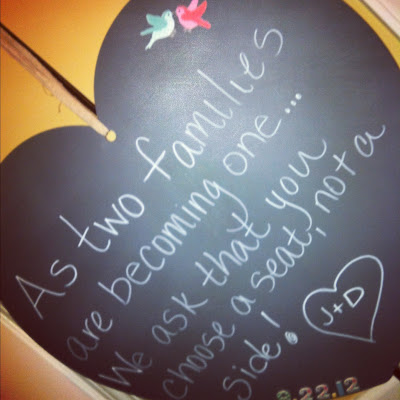 As two families
are becoming one...
We ask that you
choose a seat, not a
side!
J+D
9.22.12